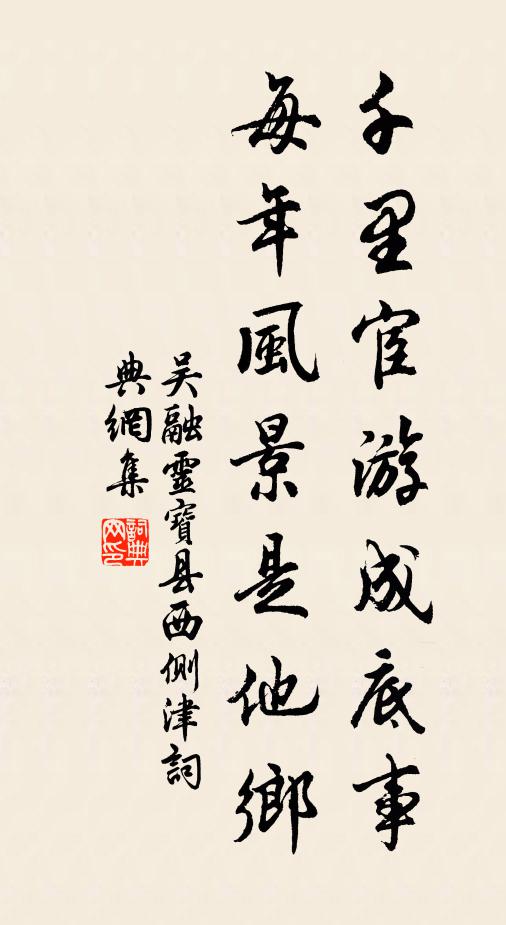 千里宦游成底事
每年風景是他鄉
吴融靈寶县西側津詞
典網集
詞典网印